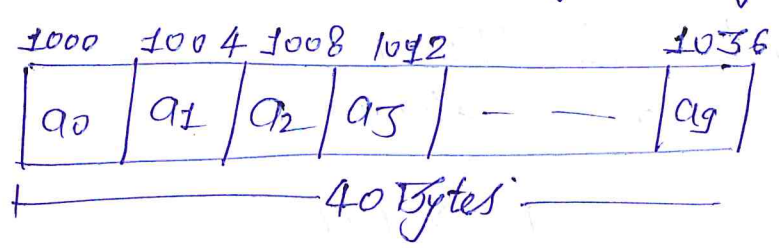 1000 1004 1008 1012 1036
a0 a1 a2 a3 - - a9
40 Bytes